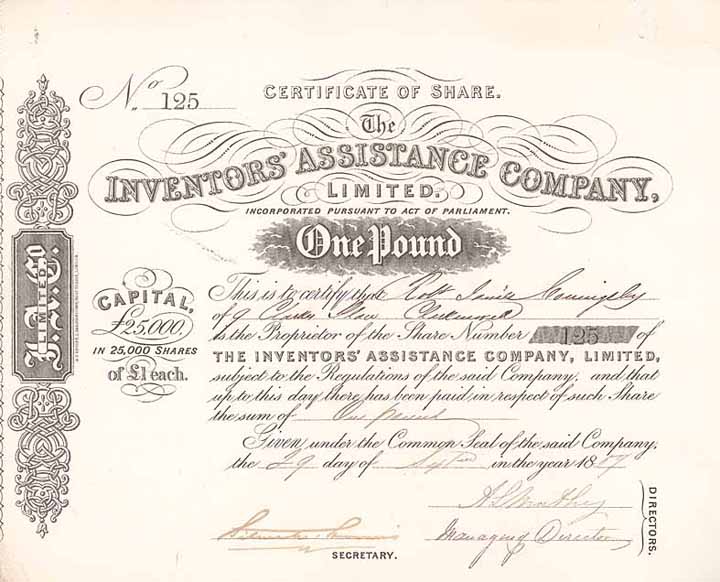 No. 125
CERTIFICATE OF SHARE.
The
INVENTORS' ASSISTANCE COMPANY,
LIMITED.
INCORPORATED PURSUANT TO ACT OF PARLIAMENT.
One Pound
I.A.Co.
LIMITED.
CAPITAL,
£25,000,
IN 25,000 SHARES
of £1 each.
This is to certify that Robt
of 9
is the Proprietor of the Share Number 125 of
THE INVENTORS' ASSISTANCE COMPANY, LIMITED,
subject to the Regulations of the said Company, and that
up to this day there has been paid in respect of such Share
the sum of One pound
Given under the Common Seal of the said Company,
the 29 day of in the year 18
Managing Director
DIRECTORS.
SECRETARY.